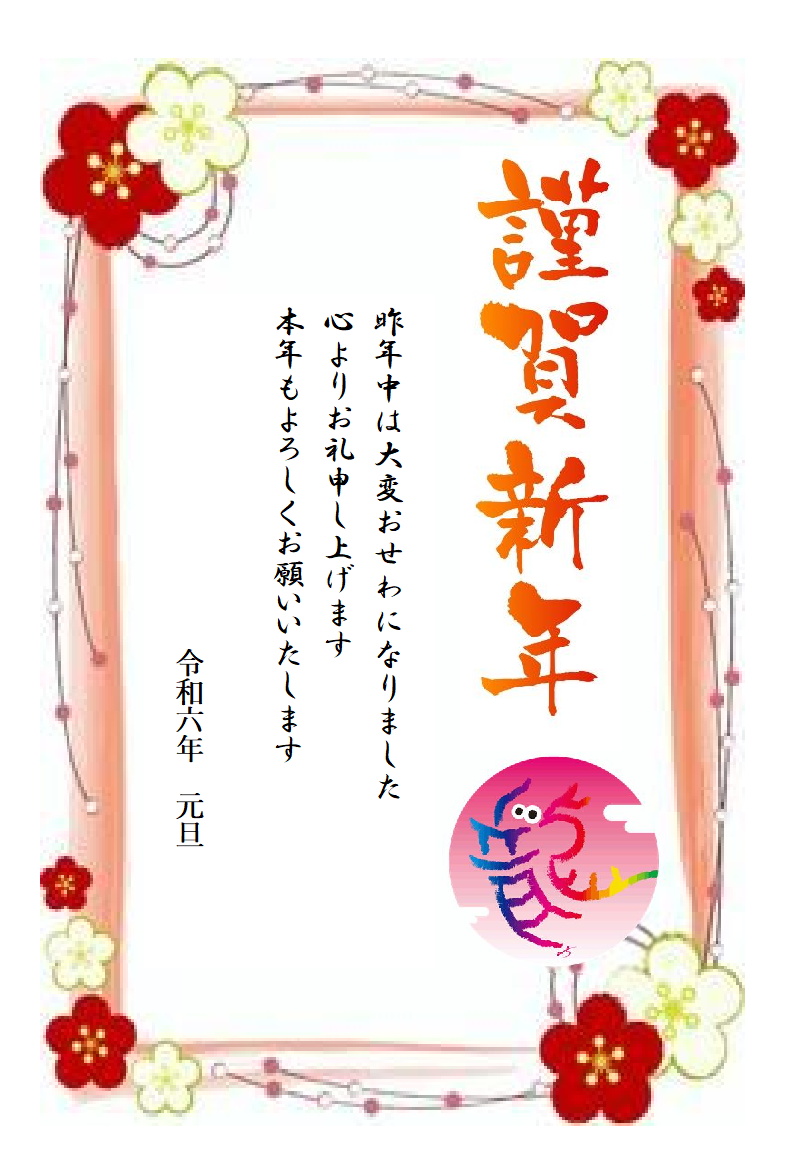 謹賀新年
昨年中は大変おせわになりました
心よりお礼申し上げます
本年もよろしくお願いいたします
令和六年　元旦
龍